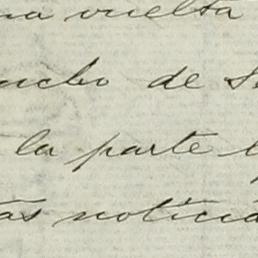 na vuelta
ncho de S
la parte
ás noticia